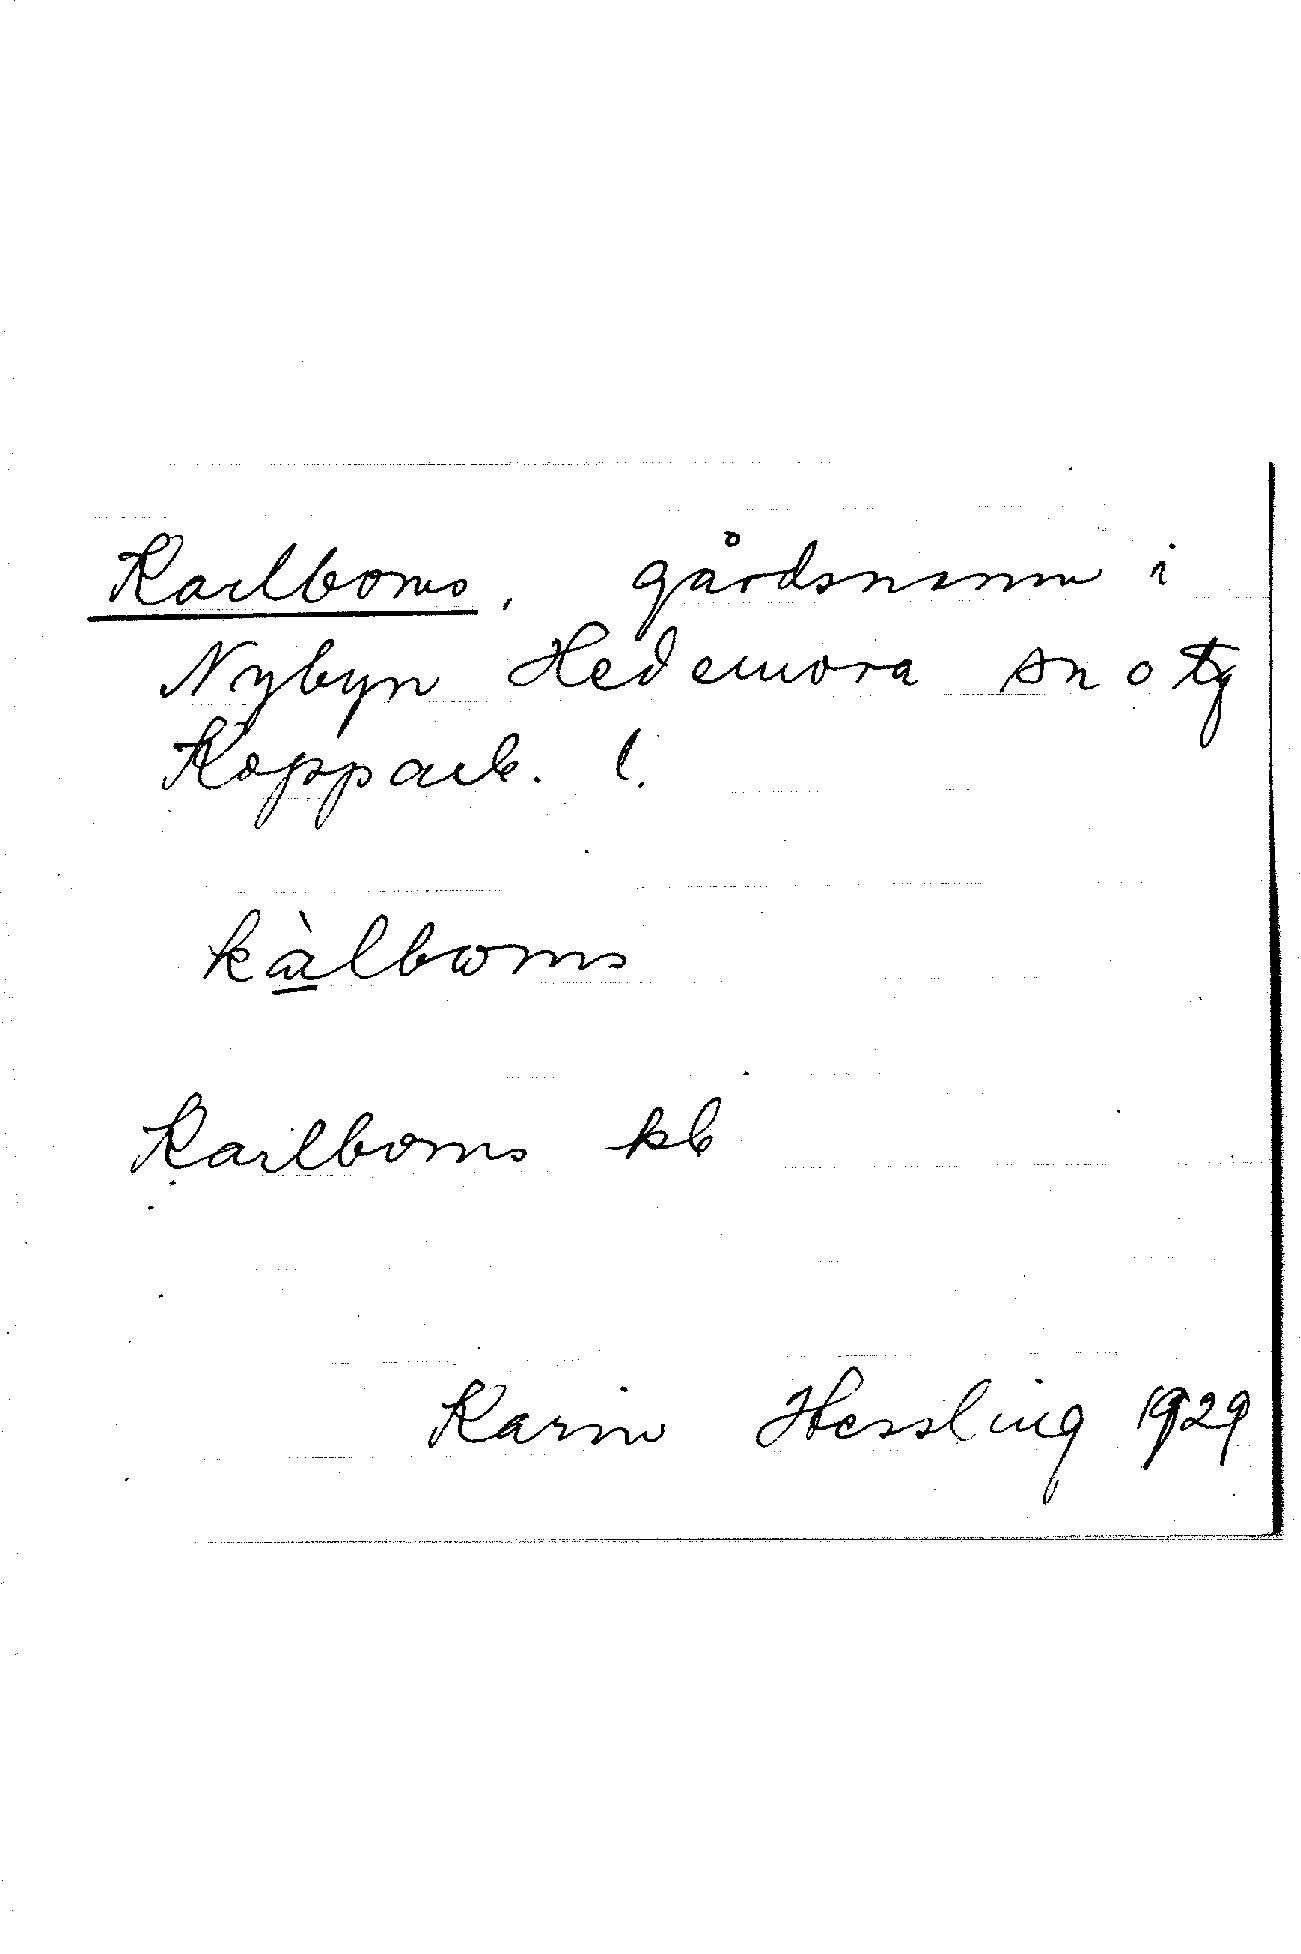 Karlboms, gårdsnamn i
Nybyn Hedemora sn o tg
Kopparb. l.
kàlboms
Karlboms kb
Karin Hessling 1929